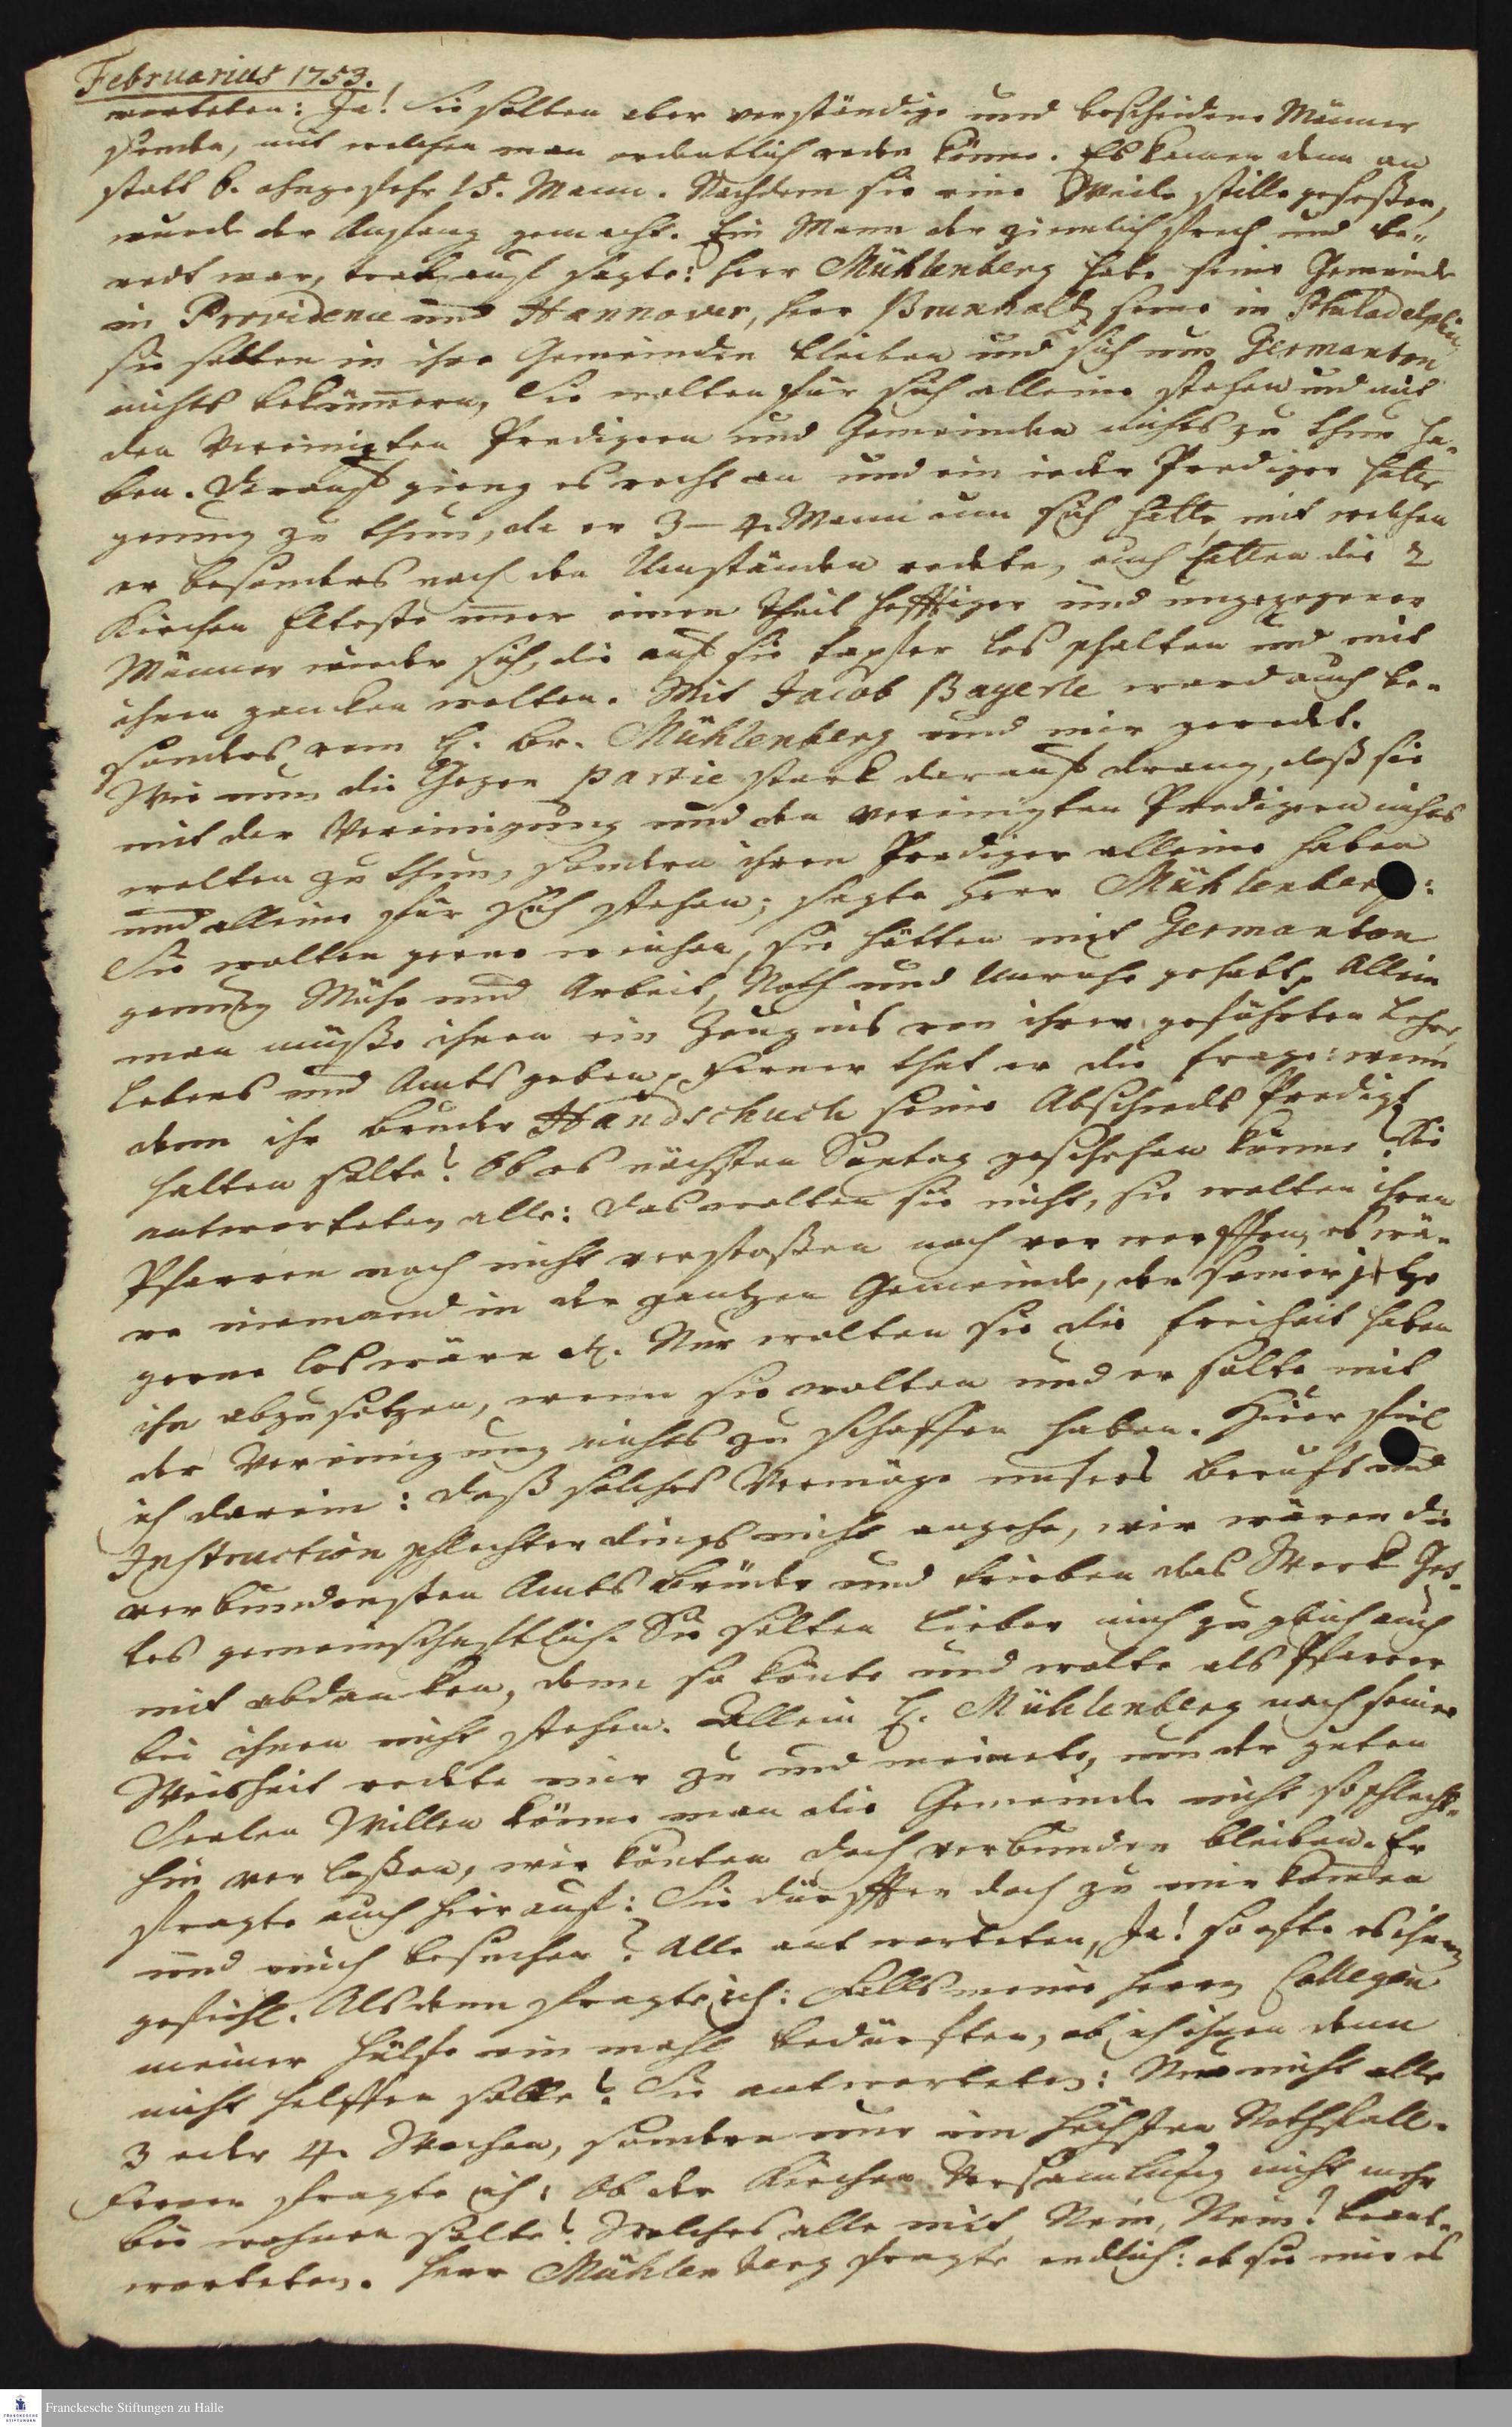 Februarius 1753.
worteten: Ja! Sie solten aber verständige und bescheidene Männer
senden, mit welchen man ordentlich reden könne. Es kamen denn an
statt 6. ohngefehr 15. Mann. Nachdem sie eine Weile stille gesessen,
wurde der Anfang gemacht. Ein Mann der ziemlich frech und be-
redt war, trat auf sagte: Herr Mühlenberg habe seine Gemeinde
in Providence und Hannover, Herr Brunholtz seine in Philadelphia,
sie solten in ihre Gemeinden bleiben und sich um Germanton
nichts bekümmern, Sie wolten für sich alleine stehen und mit
den Vereinigten Predigern und Gemeinden nichts zu thun ha-
ben. Darauf gieng es recht an und ein ieder Prediger hatte
genung zu thun, da er 3–4. Mann um sich hatte, mit welchen
er besonders nach den Umständen redete, auch hatten die 2
Kirchen Elteste immer einen Theil hefftiger und ungezogener
Männer wieder sich, die auf sie tapfer los schalten und mit
ihnen zancken wolten. Mit Jacob Bayerle ward auch be-
sonders vom H. Br. Mühlenberg und mir geredet.
Wie nun die Gegen partie starck darauf drang, daß sie
mit der Vereinigung und den vereinigten Predigern nichts
wolten zu thun, sondern ihren Prediger alleine haben
und alleine für sich stehen; sagte Herr Mühlenberg:
Sie wolten gerne weichen, sie hätten mit Germanton
genung Mühe und Arbeit, Noth und Unruhe gehabt, Allein
man müsse ihnen ein Zeugnis von ihrer geführten Lehre
Lebens und Amts geben, Ferner that er die Frage: wenn
denn ihr Bruder Handschuch seine Abschieds Predigt
halten solte? Ob es nächsten Sontag geschehen könne? Sie
antworteten alle: das wolten sie nicht, sie wolten ihren
Pfarren noch nicht verstossen noch ver werffen, es wä-
re niemand in der gantzen Gemeinde, der seiner jetzo
gerne los wäre etc. Nur wolten sie die Freiheit haben
ihn abzusetzen, wenn sie wolten und er solte mit
der Vereinigung nichts zu schaffen haben. Hier fiel
ich darein: daß solches Vermöge unsers Berufs und
Instruction schlechterdings nicht angehe, wir wären die
verbundensten Amts Brüder und trieben das Werck Got-
tes gemeinschafftlich. Sie solten lieber mich zugleich auch
mit abdancken, denn so könte und wolte als Pfarrer
bei ihnen nicht stehen. Allein H. Mühlenberg nach seiner
Weisheit redete mir zu und meinete, um der guten
Seelen Willen könne man die Gemeinde nicht so schlecht-
hin ver lassen, wir könten doch verbunden bleiben. Er
fragte auch hierauf: Sie dürfften doch zu mir kommen
und mich besuchen? Alle ant worteten, Ja! so offte es ihnen
gefiehl. Alsdenn fragte ich: Falls meine Herrn Collegen
meiner Hülfe ein mahl bedürften, ob ich ihnen denn
nicht helffen solte? Sie antworteten: Nur nicht alle
3 oder 4. Wochen, sondern nur im höchsten Nothfall.
Ferner fragte ich: Ob der Kirchen Versamlung nicht mehr
bei wohnen solte? Welches alle mit, Nein, Nein! beant-
worteten. Herr Mühlenberg fragte endlich: ob sie mir es
Franckesche Stiftungen zu Halle